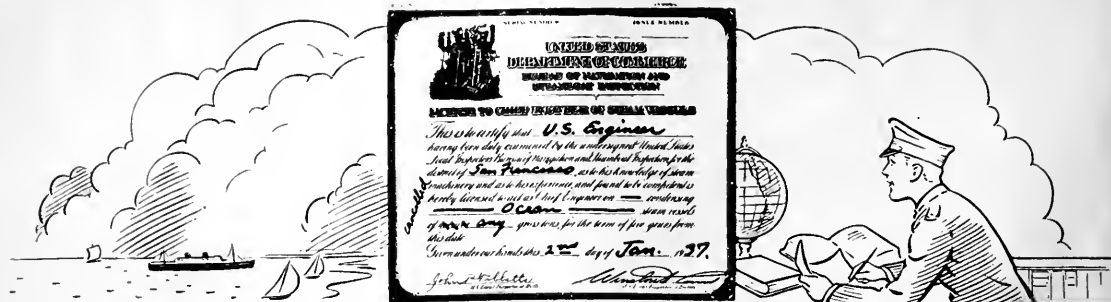 SERIAL NUMBER ISSUE NUMBER
UNITED STATES
DEPARTMENT OF COMMERCE
BUREAU OF NAVIGATION AND
STEAMBOAT INSPECTION
LICENSE TO CHIEF ENGINEER OF STEAM VESSELS
This is to certify that U.S. Engineer
having been duly examined by the undersigned United States
Local Inspectors Bureau of Navigation and Steamboat Inspection, for the
district of San Francisco, as to his knowledge of steam
machinery and as to his experience, and found to be competent is
hereby licensed to act as Chief Engineer on — condensing
cancelled
Ocean steam vessels
of any gross tons, for the term of five years from
this date
Given under our hands this 2nd day of Jan. 1937.
John